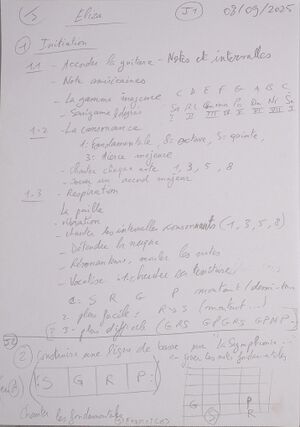 Eliza
J1
03/09/2025
1 Initiation
1.1 - Accorder la guitare - Notes et intervalles
- Note américaines
C D E F G A B C
- La gamme majeure
- Sarégame
I II III IV V VI VII I
1.2 - La consonance
1: Fondamentale, 8: octave, 5: quinte,
3: tierce majeure
- Chanter chaque note 1, 3, 5, 8
- Jouer un accord majeur
1.3 - Respiration
La paille
- vibration
- chanter les intervalles consonants (1, 3, 5, 8)
- Détendre la nuque
- Résonateurs, les notes
- Vocalise: chercher
S R G P montant / demi-ton
2. plus facile: R → S (montant
3. plus difficile (GRS GPGRS GPNP
J2
2 Construire une ligne de basse sur la Symphonie
les notes fondamentales
S G R P
G S R P
Chanter les fondamentales